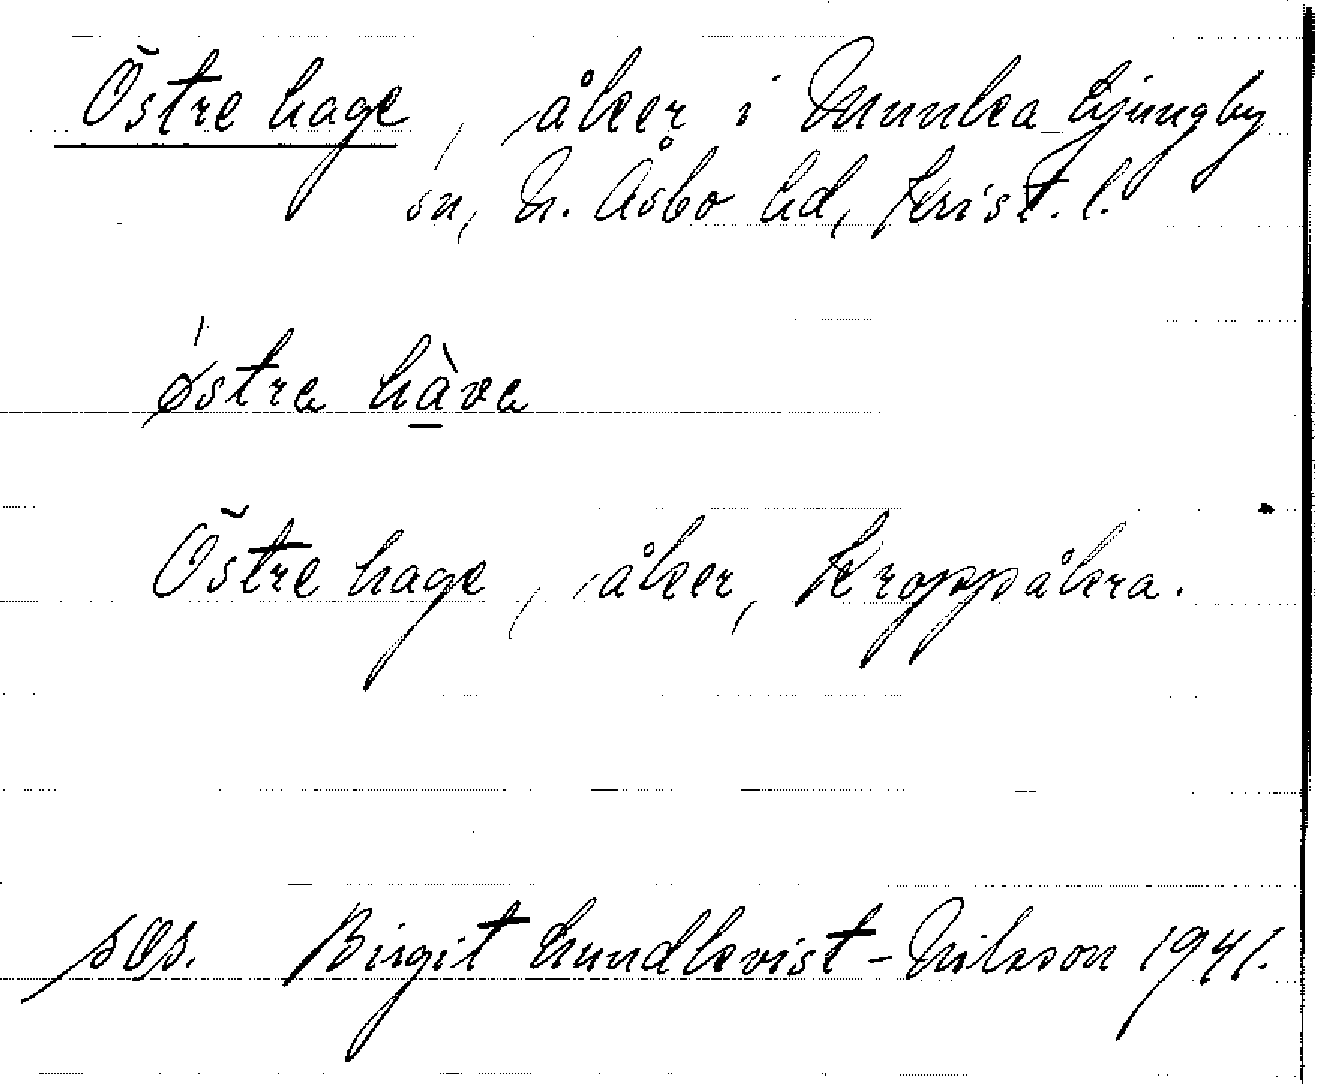 Östre hage, åker i Munka Ljungby
sn, N. Åsbo hd, Krist. l.
østra hàva
Östre hage, åker, Kroppåkra.
Birgit Lundkvist-Nilsson 1941.